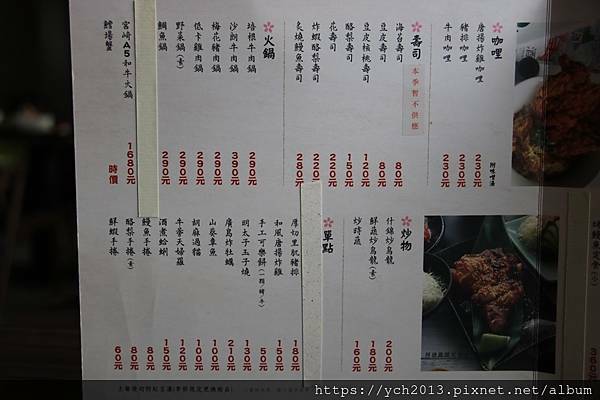 咖哩
唐揚炸雞咖哩 230元
豬排咖哩 230元
牛肉咖哩 230元
附味噌湯
壽司
本季暫不供應
海苔壽司 80元
豆皮壽司 80元
豆皮核桃壽司 120元
酪梨壽司 150元
花壽司 220元
炸蝦酪梨壽司 220元
炙燒鰻魚壽司 280元
火鍋
培根牛肉鍋 290元
沙朗牛肉鍋 390元
梅花豬肉鍋 290元
低卡雞肉鍋 290元
野菜鍋(素) 290元
鯛魚鍋 290元
宮崎A5和牛火鍋 1680元
鱈場蟹 時價
炒物
什錦炒烏龍 200元
鮮蔬炒烏龍(素) 180元
炒時蔬 160元
單點
厚切里肌豬排 180元
和風唐揚炸雞 150元
手工可樂餅 50元
明太子玉子燒 130元
廣島炸牡蠣 210元
山葵章魚 100元
胡麻過貓 100元
牛蒡天婦羅 120元
酒煮蛤蜊 150元
鰻魚手捲 80元
酪梨手捲(素) 80元
鮮蝦手捲 60元
https://ych2013.pixnet.net/album